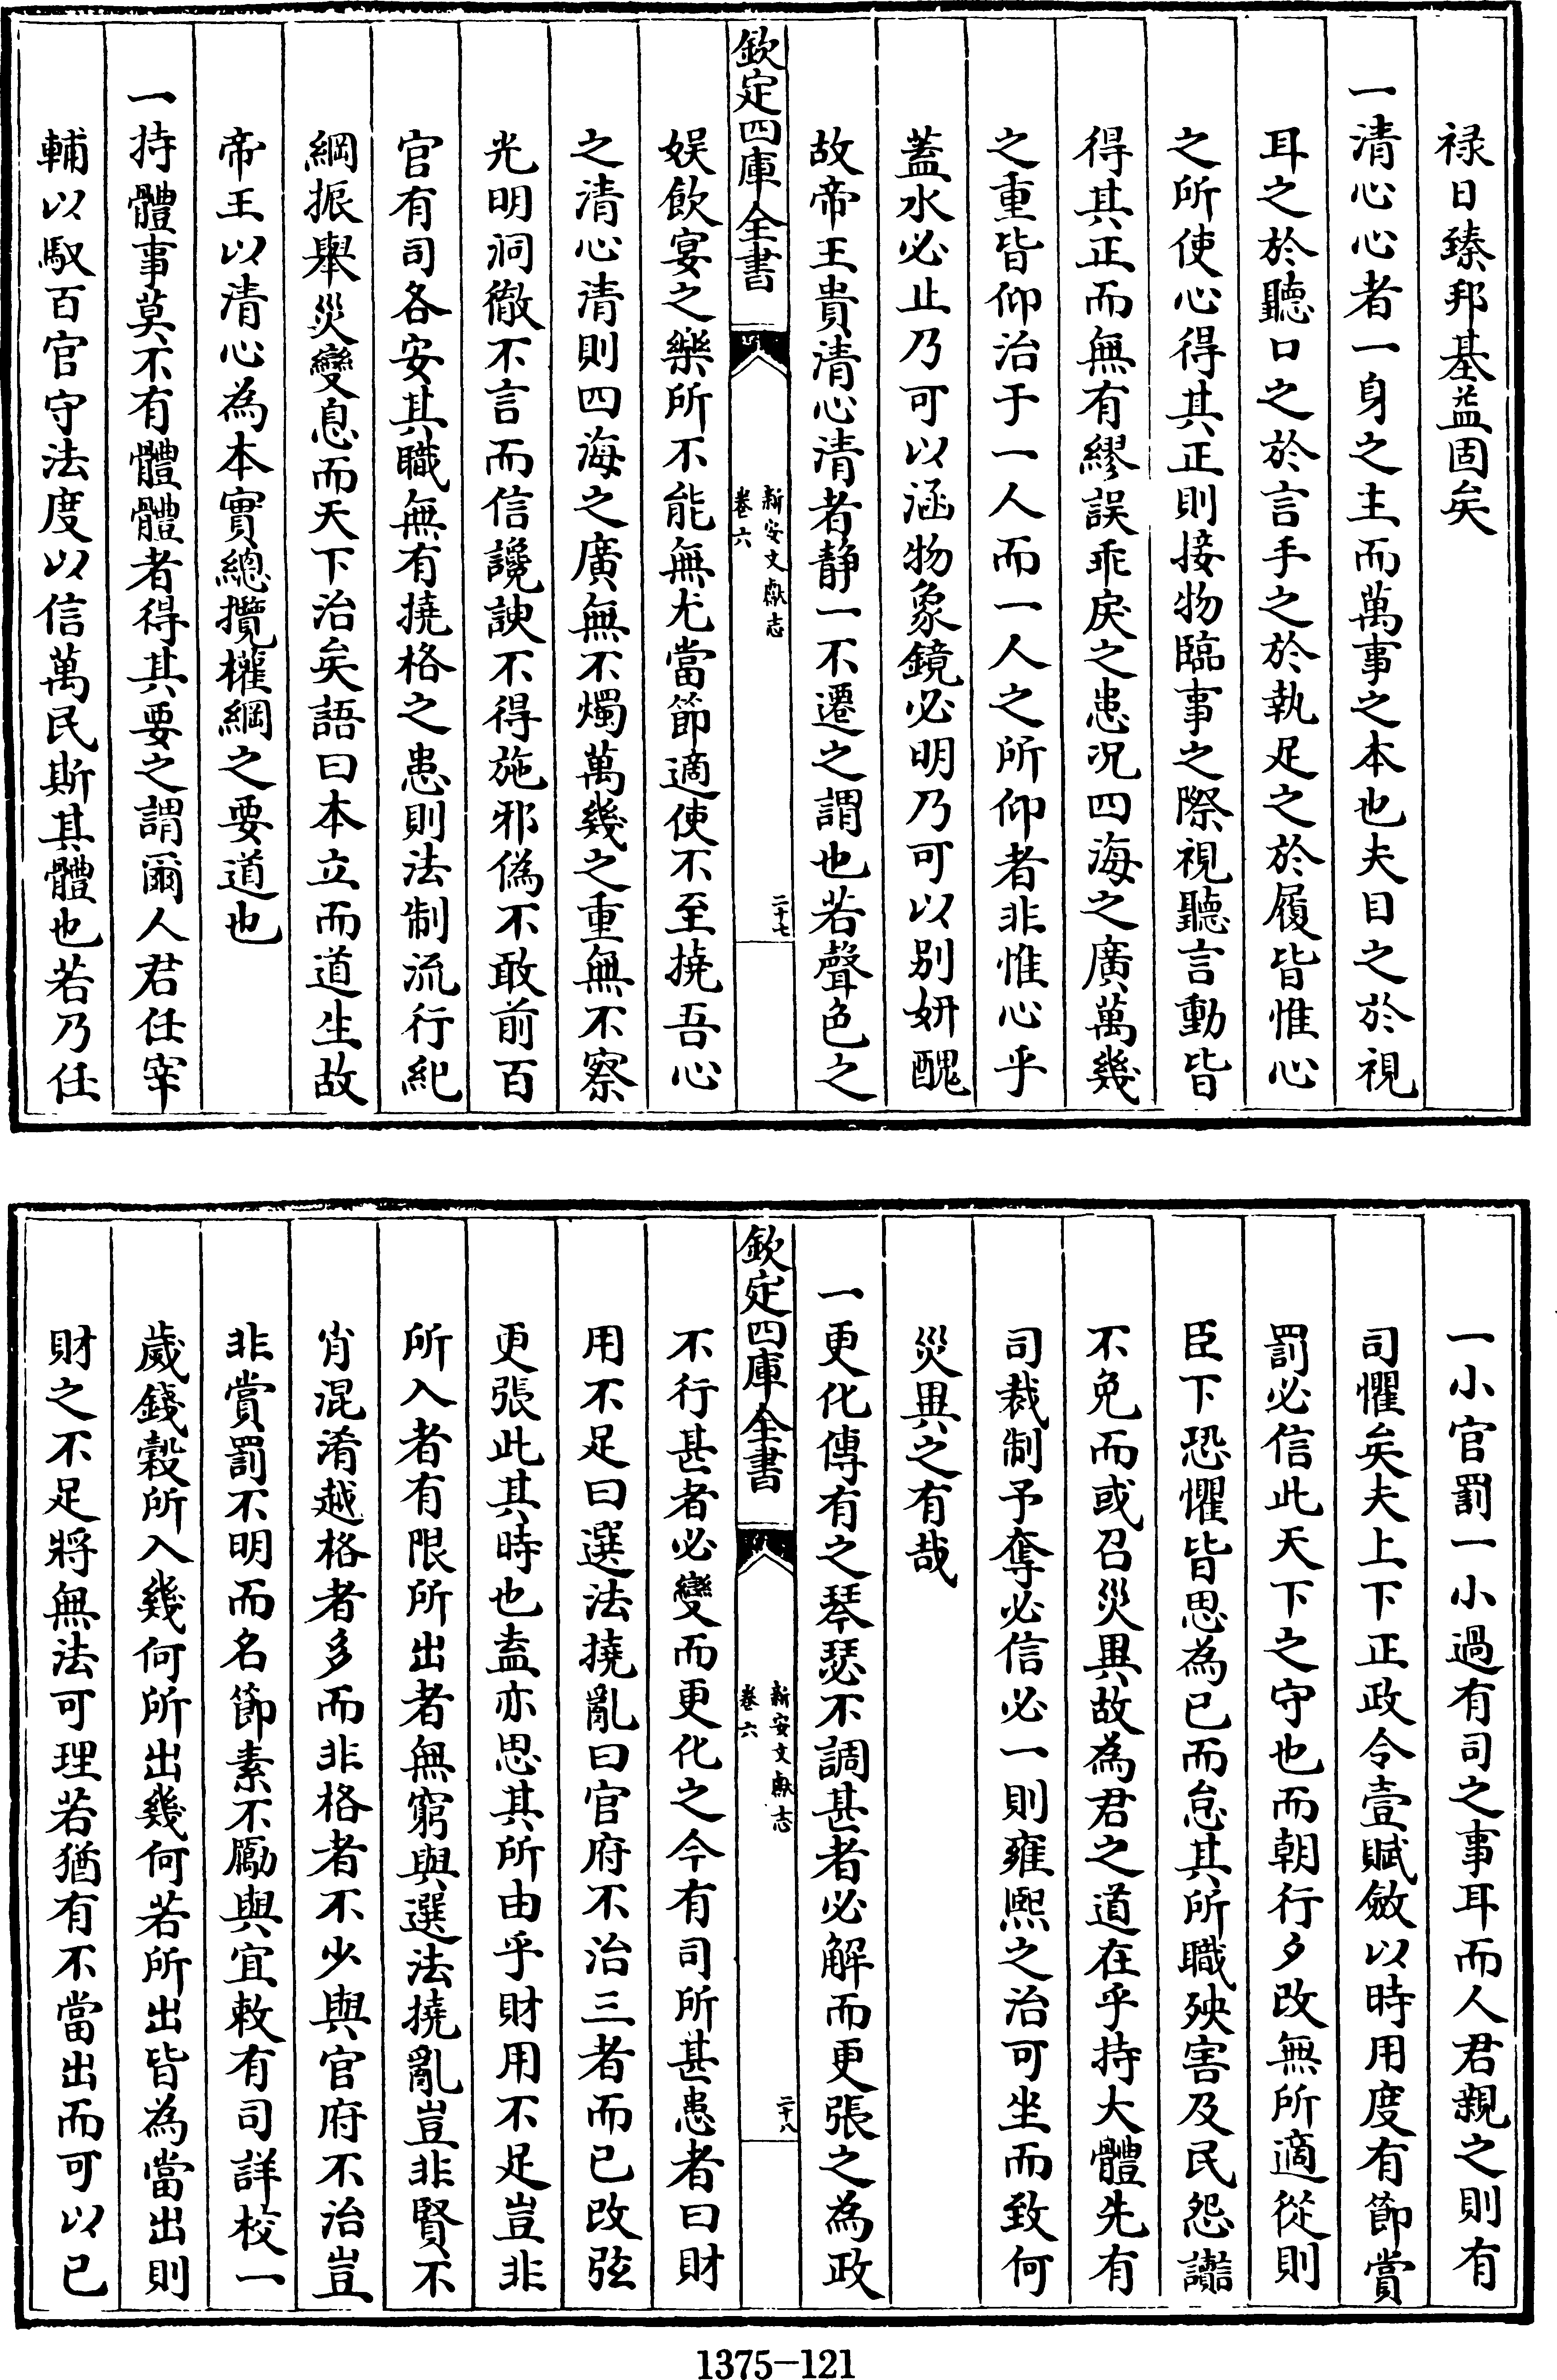 禄日臻邦基益固矣
一清心心者一身之主而萬事之本也夫目之於視
耳之於聽口之於言手之於執足之於履皆惟心
之所使心得其正則接物臨事之際視聽言動皆
得其正而無有繆誤乖戾之患况四海之廣萬幾
之重皆仰治于一人而一人之所仰者非惟心乎
蓋水必止乃可以涵物象鏡必明乃可以别妍醜
故帝王貴清心清者静一不遷之謂也若聲色之
欽定四庫全書
新安文獻志
卷六
二十七
娱飲宴之樂所不能無尤當節適使不至撓吾心
之清心清則四海之廣無不燭萬幾之重無不察
光明洞徹不言而信讒諛不得施邪偽不敢前百
官有司各安其職無有撓格之患則法制流行紀
綱振舉災變息而天下治矣語曰本立而道生故
帝王以清心為本實總攬權綱之要道也
一持體事莫不有體體者得其要之謂爾人君任宰
輔以馭百官守法度以信萬民斯其體也若乃任
一小官罰一小過有司之事耳而人君親之則有
司懼矣夫上下正政令壹賦斂以時用度有節賞
罰必信此天下之守也而朝行夕改無所適從則
臣下恐懼皆思為已而怠其所職殃害及民怨讟
不免而或召災異故為君之道在乎持大體先有
司裁制予奪必信必一則雍熙之治可坐而致何
災異之有哉
一更化傳有之琴瑟不調甚者必解而更張之為政
欽定四庫全書
新安文獻志
卷六
二十八
不行甚者必變而更化之今有司所甚患者曰財
用不足曰選法撓亂曰官府不治三者而已改弦
更張此其時也盍亦思其所由乎財用不足豈非
所入者有限所出者無窮與選法撓亂豈非賢不
肖混淆越格者多而非格者不少與官府不治豈
非賞罰不明而名節素不勵與宜敕有司詳校一
歲錢穀所入幾何所出幾何若所出皆為當出則
財之不足將無法可理若猶有不當出而可以已
1375-121